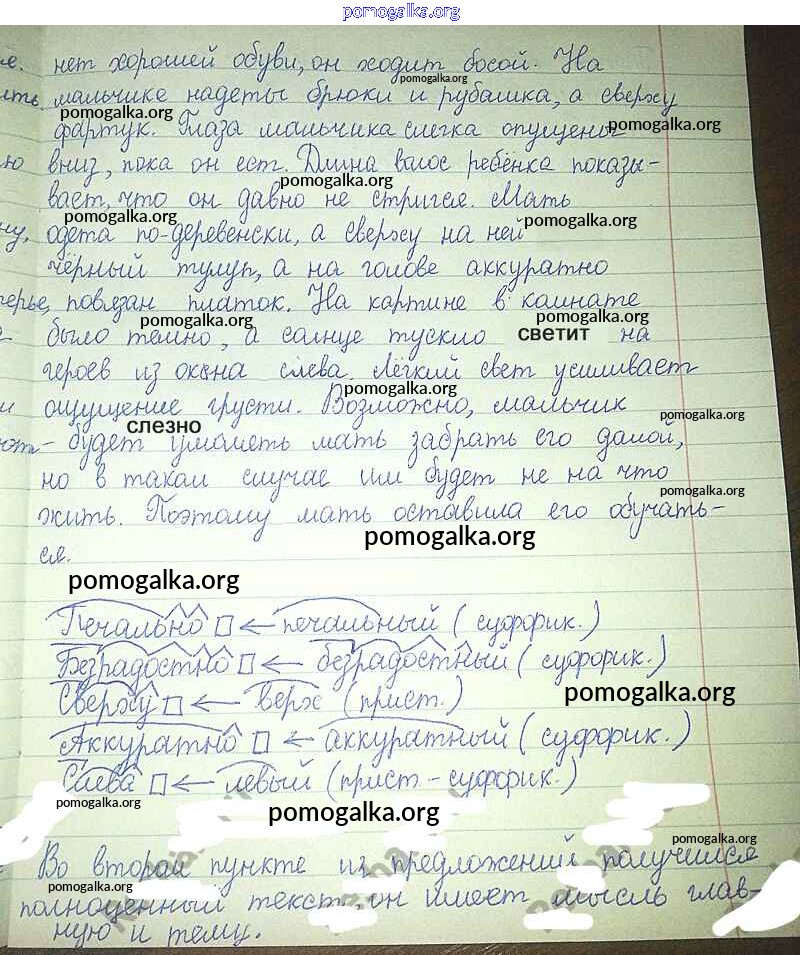 pomogalka.org
е. нет хорошей обуви, он ходит босой. На
pomogalka.org
ить мальчике надеты брюки и рубашка, а сверху
pomogalka.org
фартук. Глаза мальчика слегка опущены
pomogalka.org
ю вниз, пока он ест. Длина волос ребёнка показы-
pomogalka.org
вает, что он давно не стригся. Мать
pomogalka.org pomogalka.org
ну, одета по-деревенски, а сверху на ней
чёрный тулуп, а на голове аккуратно
терье, повязан платок. На картине в комнате
pomogalka.org pomogalka.org
было темно, а солнце тускло светит на
героев из окона слева. Лёгкий свет усиливает
pomogalka.org
и ощущение грусти. Возможно, мальчик
pomogalka.org
слезно
будет умолять мать забрать его домой,
но в таком случае им будет не на что
pomogalka.org
жить. Поэтому мать оставила его обучать-
pomogalka.org
ся.
pomogalka.org
Печально ← печальный (суффикс.)
Безрадостно ← безрадостный (суффикс.)
pomogalka.org
Сверху ← верх (прист.)
Аккуратно ← аккуратный (суффикс.)
Слева ← левый (прист.-суффикс.)
pomogalka.org
pomogalka.org
pomogalka.org
Во второй пункте из предложений получился
pomogalka.org
полноценный текст, он имеет мысль глав-
ную и тему.